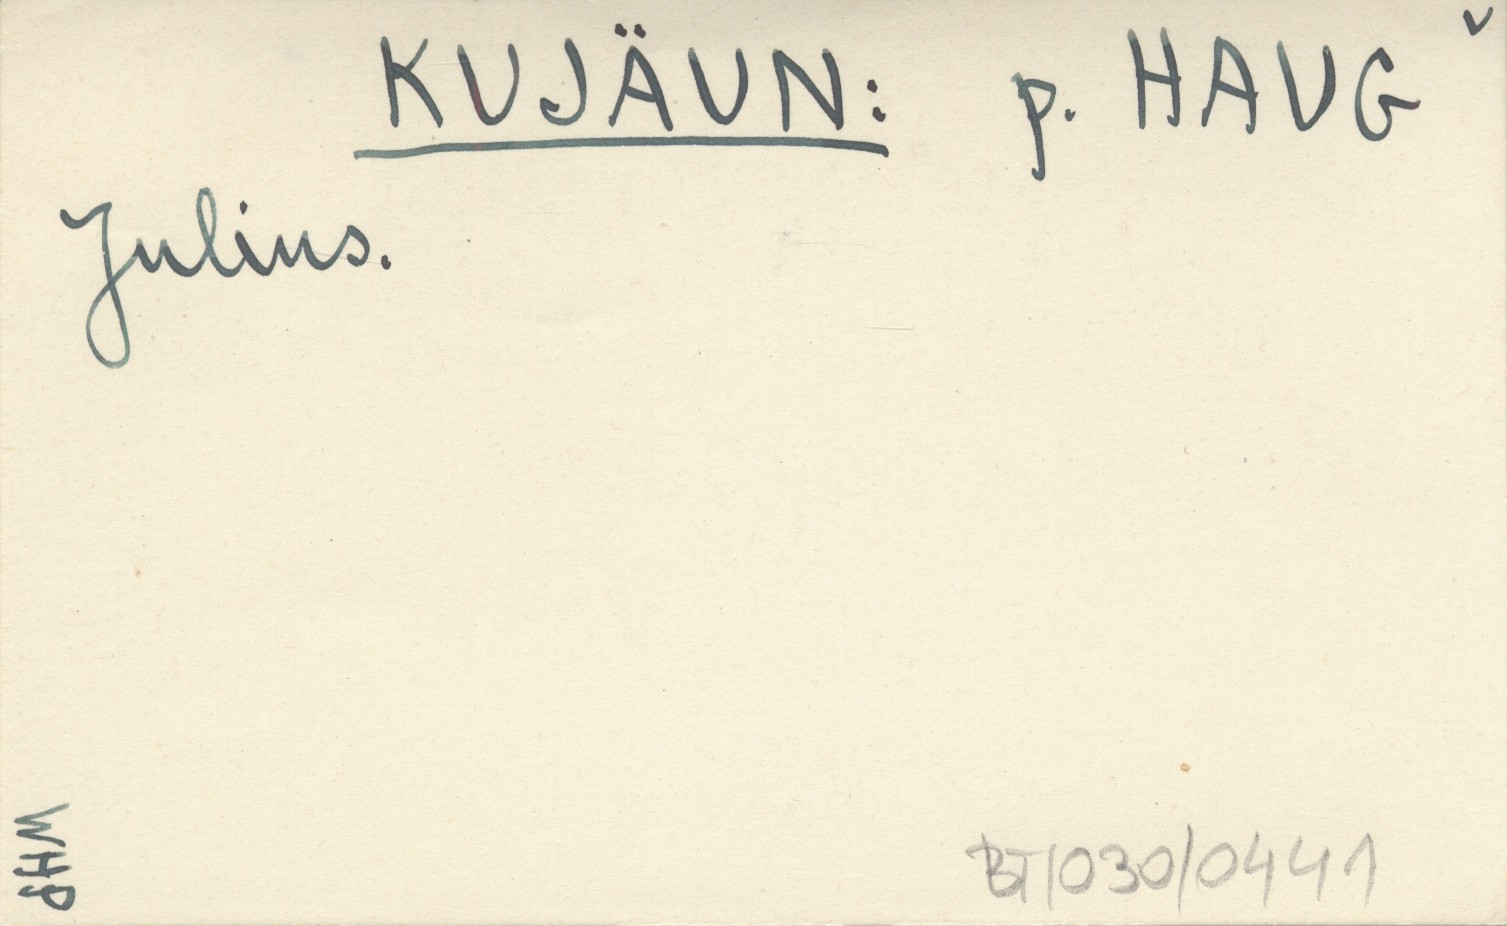 KUJÄUN: p. HAUG
Julius.
WHP
BT/030/0441